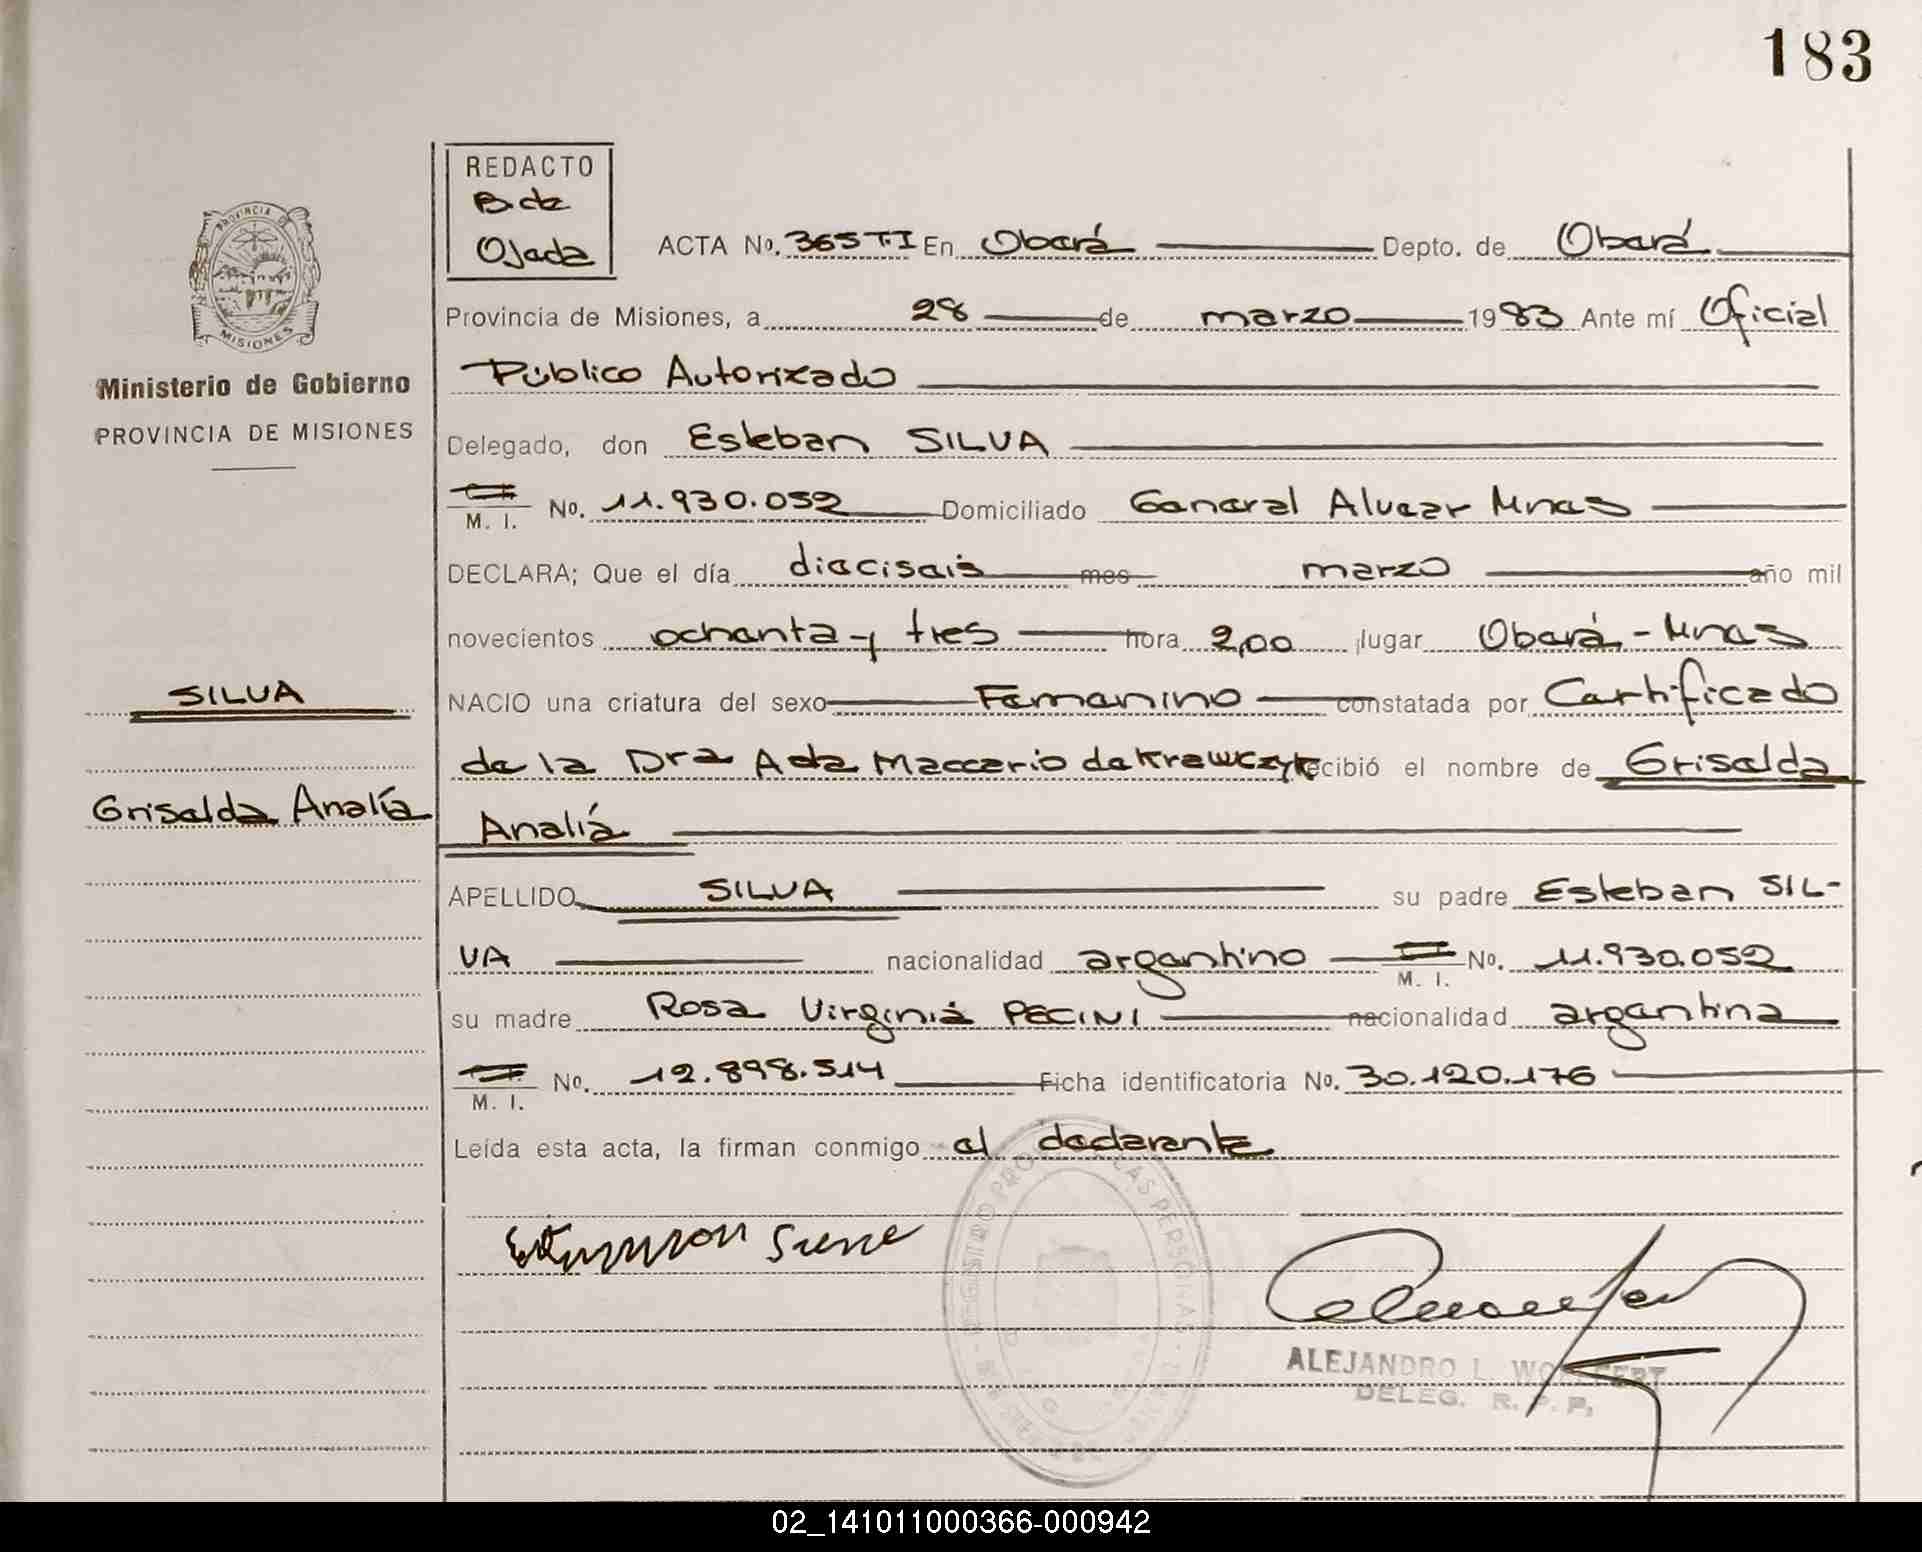 183
REDACTO
B. de
Ojeda
ACTA No. 365 T.I En Oberá Depto. de Oberá
PROVINCIA DE
MISIONES
Provincia de Misiones, a 28 de marzo 1983 Ante mí Oficial
Ministerio de Gobierno
Público Autorizado
PROVINCIA DE MISIONES
Delegado, don Esteban SILVA
M. I. No. 11.930.052 Domiciliado General Alvear Mnes
DECLARA; Que el día dieciseis mes marzo año mil
novecientos ochenta y tres hora 2,00 lugar Oberá - Mnes
SILVA
NACIO una criatura del sexo Femenino constatada por Certificado
de la Dra Ada Maccario de Krawczyk recibió el nombre de Griselda
Griselda Analía
Analía
APELLIDO SILVA su padre Esteban SIL-
VA nacionalidad argentino M. I. No. 11.930.052
su madre Rosa Virginia PECINI nacionalidad argentina
M. I. No. 12.898.514 Ficha identificatoria No. 30.120.176
Leída esta acta, la firman conmigo el declarante
ALEJANDRO L. WOLFERT
DELEG. R. P. P.
02_141011000366-000942